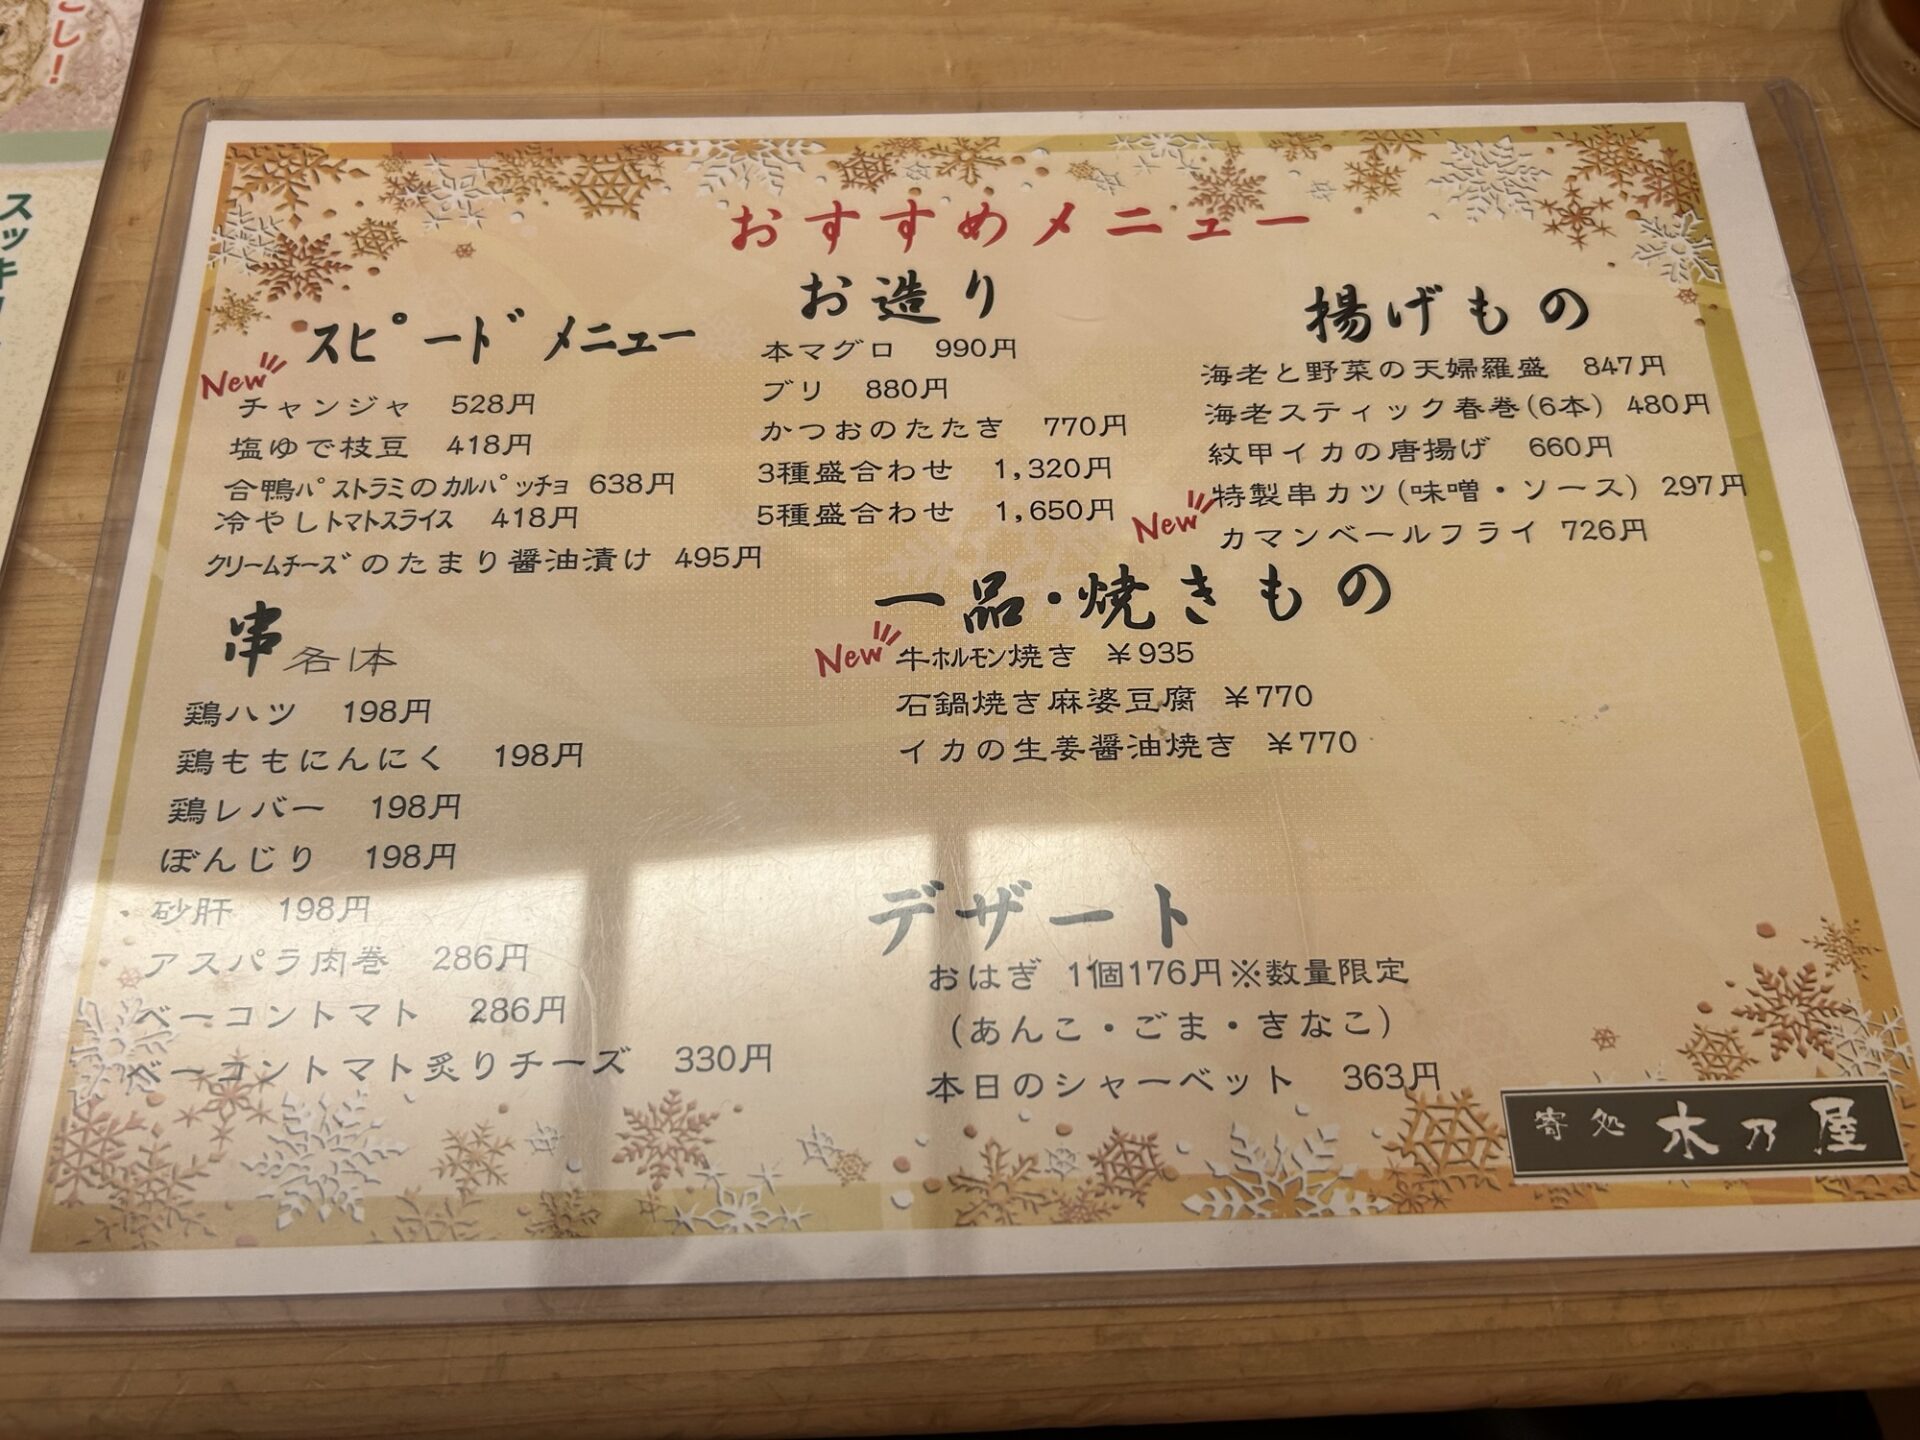 こし！
スッキリ
おすすめメニュー
スピードメニュー
New
チャンジャ 528円
塩ゆで枝豆 418円
合鴨パストラミのカルパッチョ 638円
冷やしトマトスライス 418円
クリームチーズのたまり醤油漬け 495円
串 各1本
鶏ハツ 198円
鶏ももにんにく 198円
鶏レバー 198円
ぼんじり 198円
砂肝 198円
アスパラ肉巻 286円
ベーコントマト 286円
ベーコントマト炙りチーズ 330円
お造り
本マグロ 990円
ブリ 880円
かつおのたたき 770円
3種盛合わせ 1,320円
5種盛合わせ 1,650円
揚げもの
海老と野菜の天婦羅盛 847円
海老スティック春巻(6本) 480円
紋甲イカの唐揚げ 660円
特製串カツ(味噌・ソース) 297円
New
カマンベールフライ 726円
一品・焼きもの
New
牛ホルモン焼き ￥935
石鍋焼き麻婆豆腐 ￥770
イカの生姜醤油焼き ￥770
デザート
おはぎ 1個176円※数量限定
(あんこ・ごま・きなこ)
本日のシャーベット 363円
寄処 木乃屋